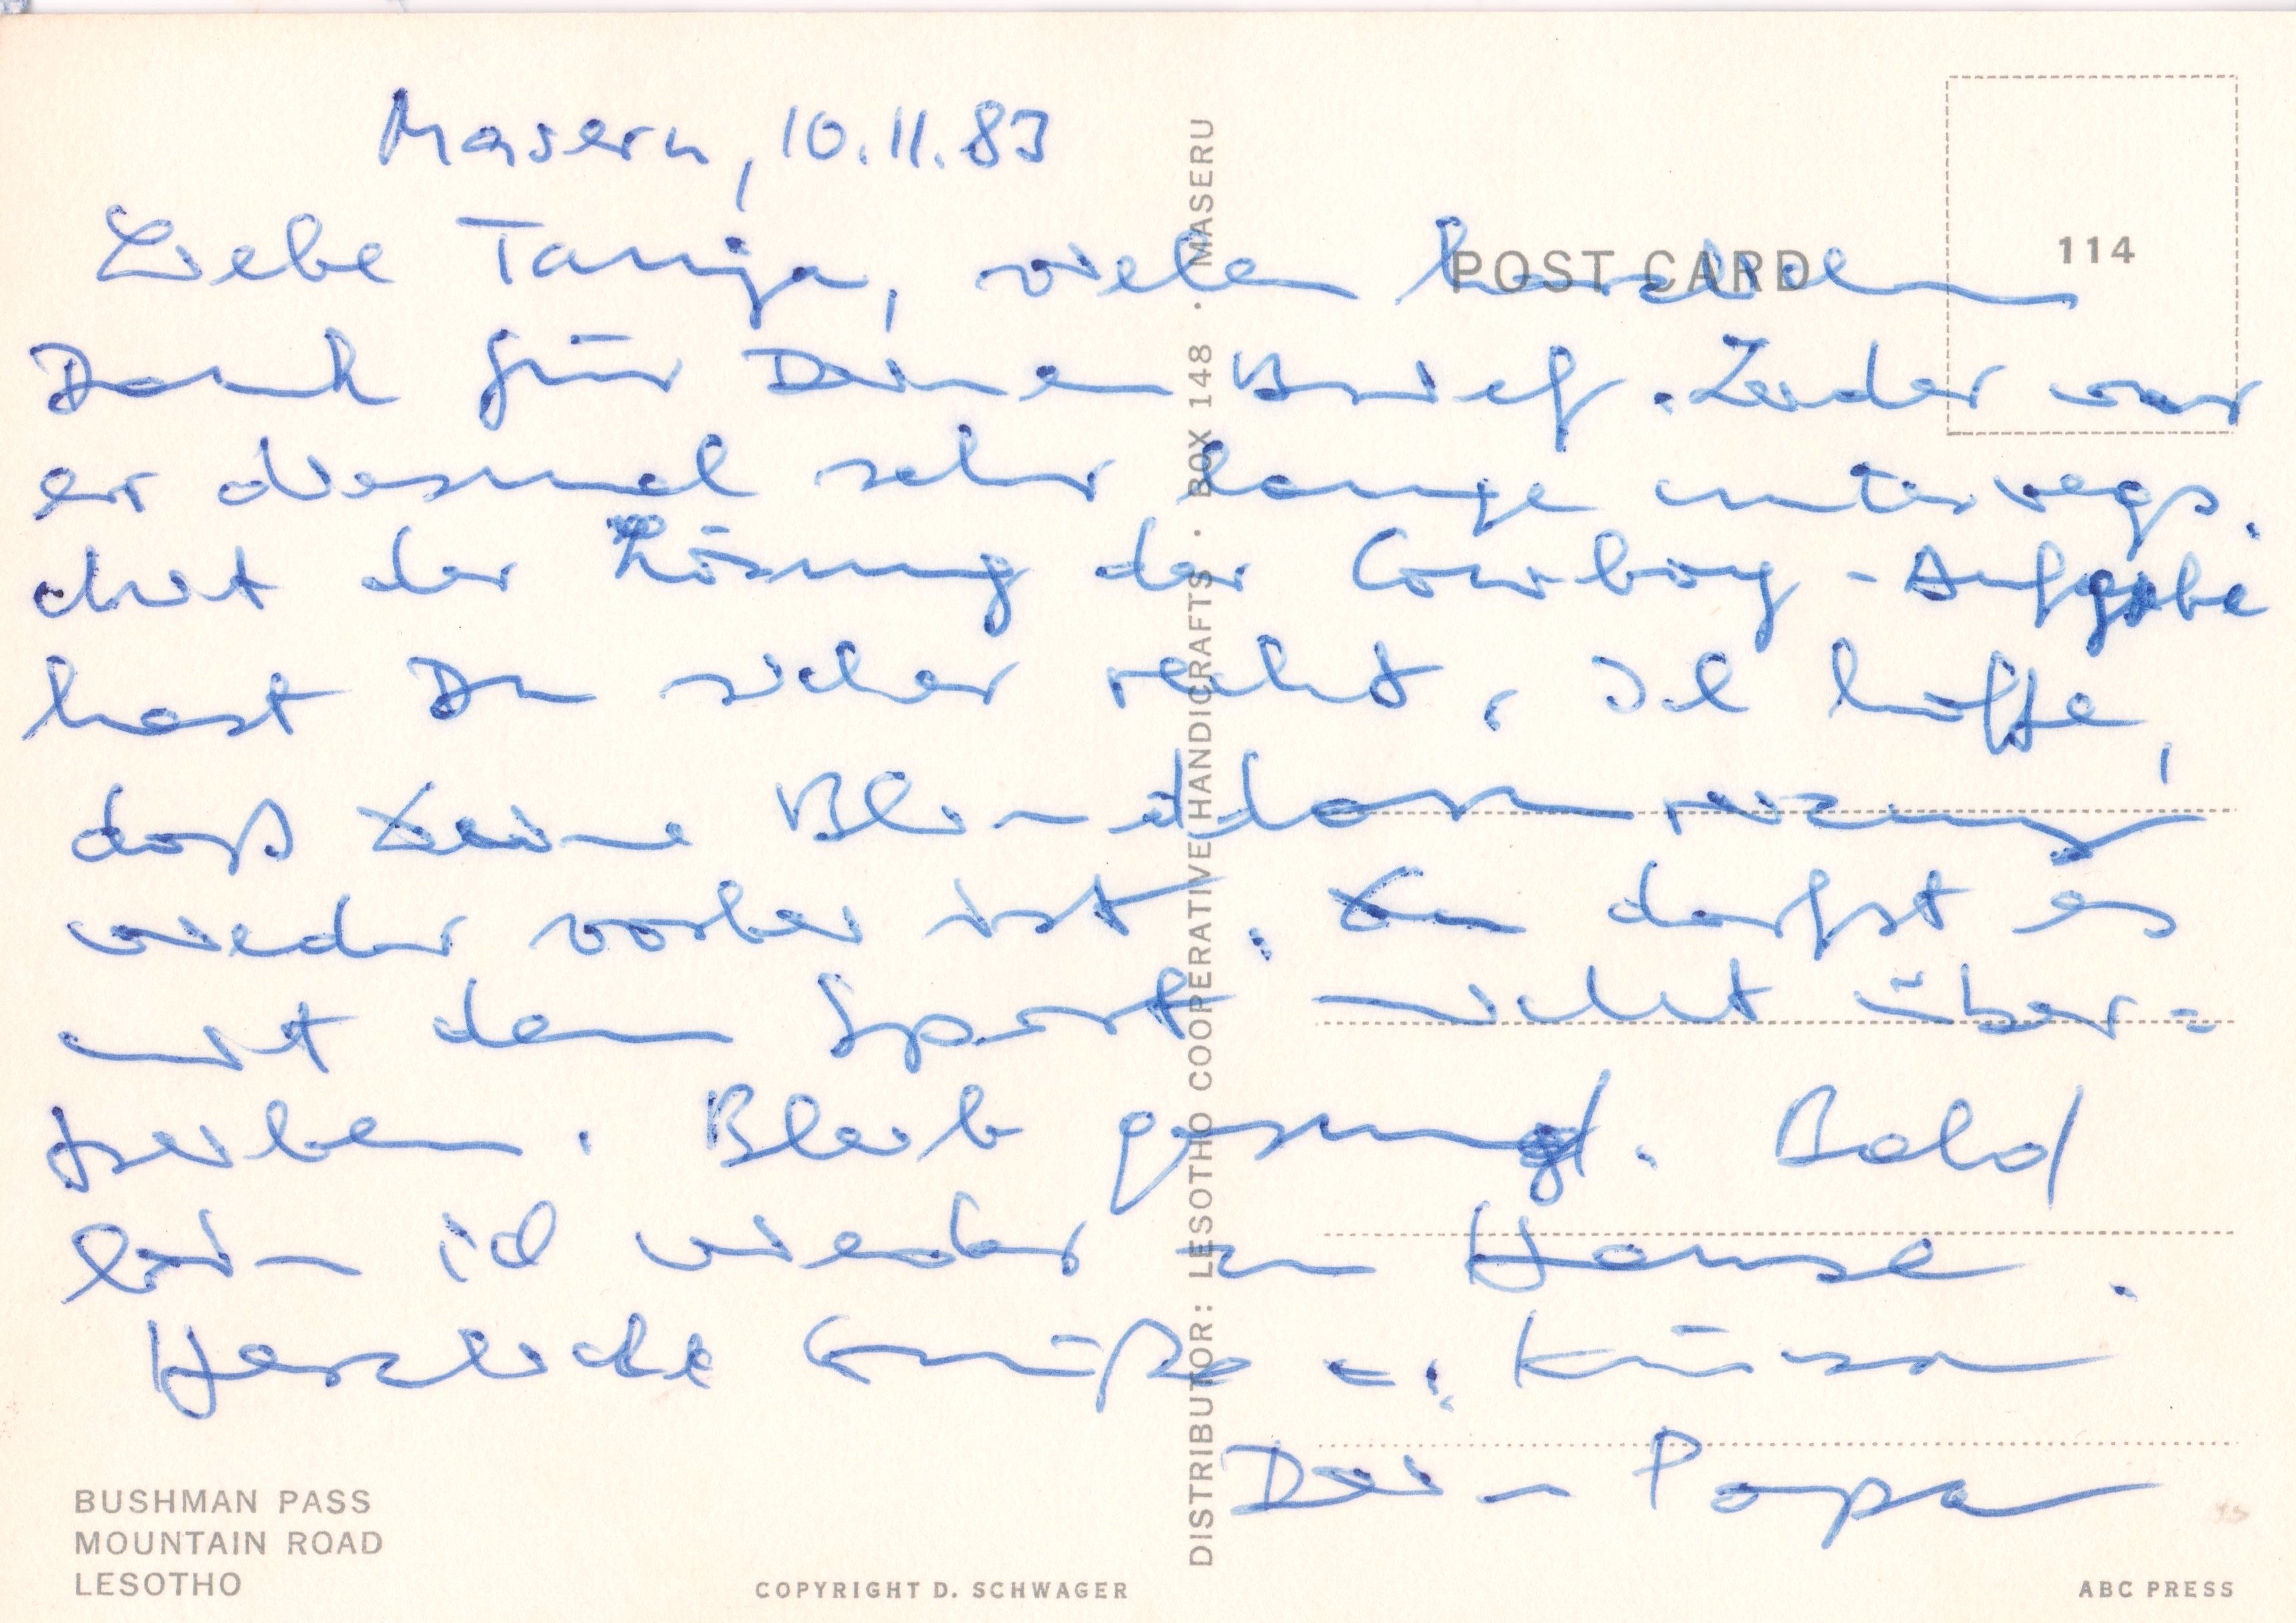 Maseru, 10.11.83
Liebe Tanja, vielen herzlichen
Dank für Deinen Brief. Leider war
er diesmal sehr lange unterwegs.
Mit der Lösung der Cowboy-Aufgabe
hast Du sicher recht. Ich hoffe,
daß Deine Blinddarmreizung
wieder vorbei ist. Du darfst es
mit dem Sport nicht über=
treiben. Bleib gesund. Bald
bin ich wieder zu Hause.
Herzliche Grüße u. Küsse
Dein Papa
POST CARD
114
DISTRIBUTOR: LESOTHO COOPERATIVE HANDICRAFTS · BOX 148 · MASERU
BUSHMAN PASS
MOUNTAIN ROAD
LESOTHO
COPYRIGHT D. SCHWAGER
ABC PRESS